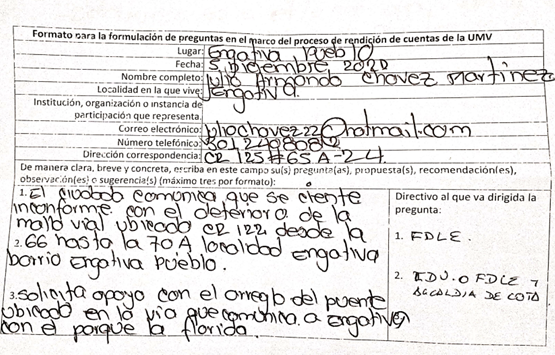 Formato para la formulación de preguntas en el marco del proceso de rendición de cuentas de la UMV
Lugar: Engativa Pueblo
Fecha: 5 Diciembre 2020
Nombre completo: Julio Armando Chavez Martinez
Localidad en la que vive: Engativa.
Institución, organización o instancia de
participación que representa.
Correo electrónico: juliochavez22@hotmail.com
Número telefónico: 3012408082
Dirección correspondencia: CR 125#65A-24
De manera clara, breve y concreta, escriba en este campo su(s) pregunta(as), propuesta(s), recomendación(es),
observación(es) o sugerencia(s) (máximo tres por formato):
1. El ciudado comunica, que se ciente
inconforme con el deterioro de la
malb vial ubicado CR 122 desde la
2. 66 hasta la 70A localidad engativa
barrio Engativa Pueblo.
3. solicita apoyo con el arreglo del puente
ubicado en la via que comunica a engativa
con el parque la florida.
Directivo al que va dirigida la
pregunta:
1. FDLE.
2. IDU. O FDLE Y
ALCALDIA DE COTA